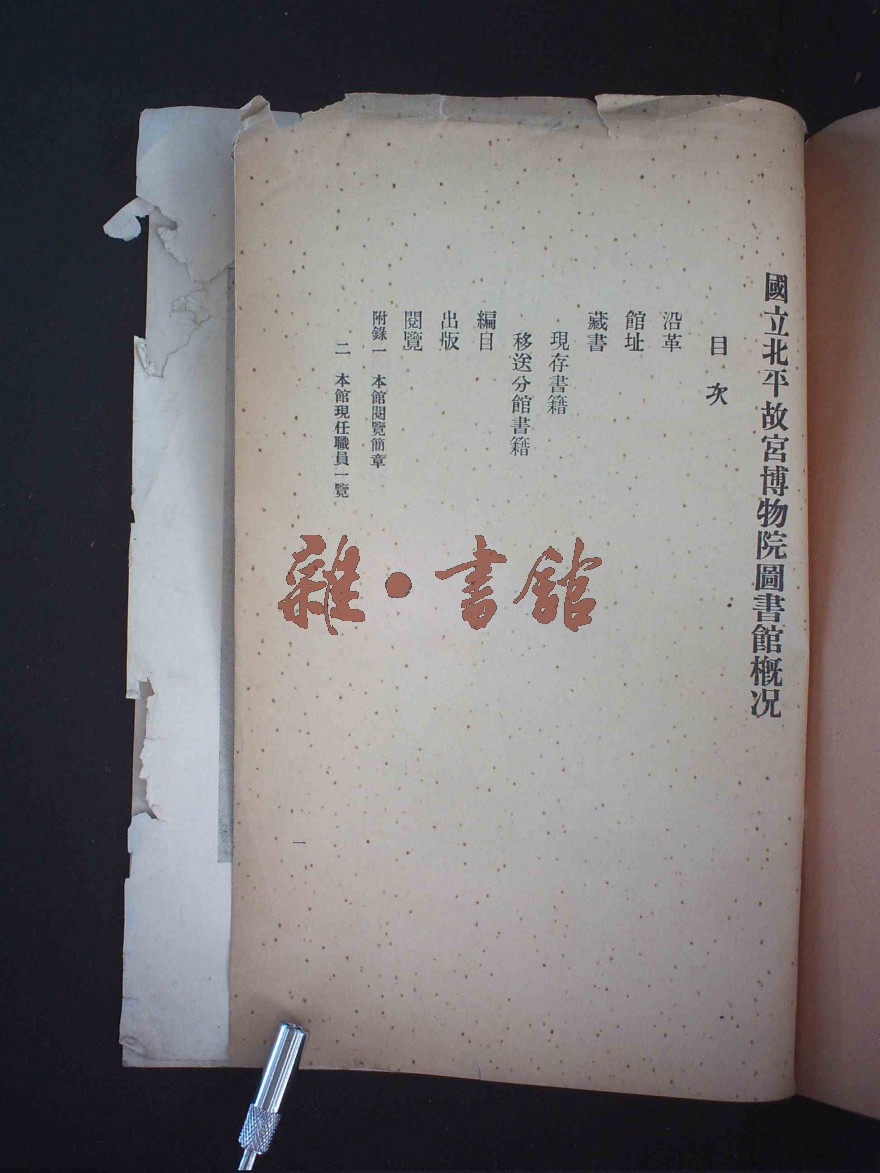 國立北平故宮博物院圖書館概況
目次
沿革
館址
藏書
現存書籍
移送分館書籍
編目
出版
閱覽
附錄一 本館閱覽簡章
二 本館現任職員一覽
一
雜·書館